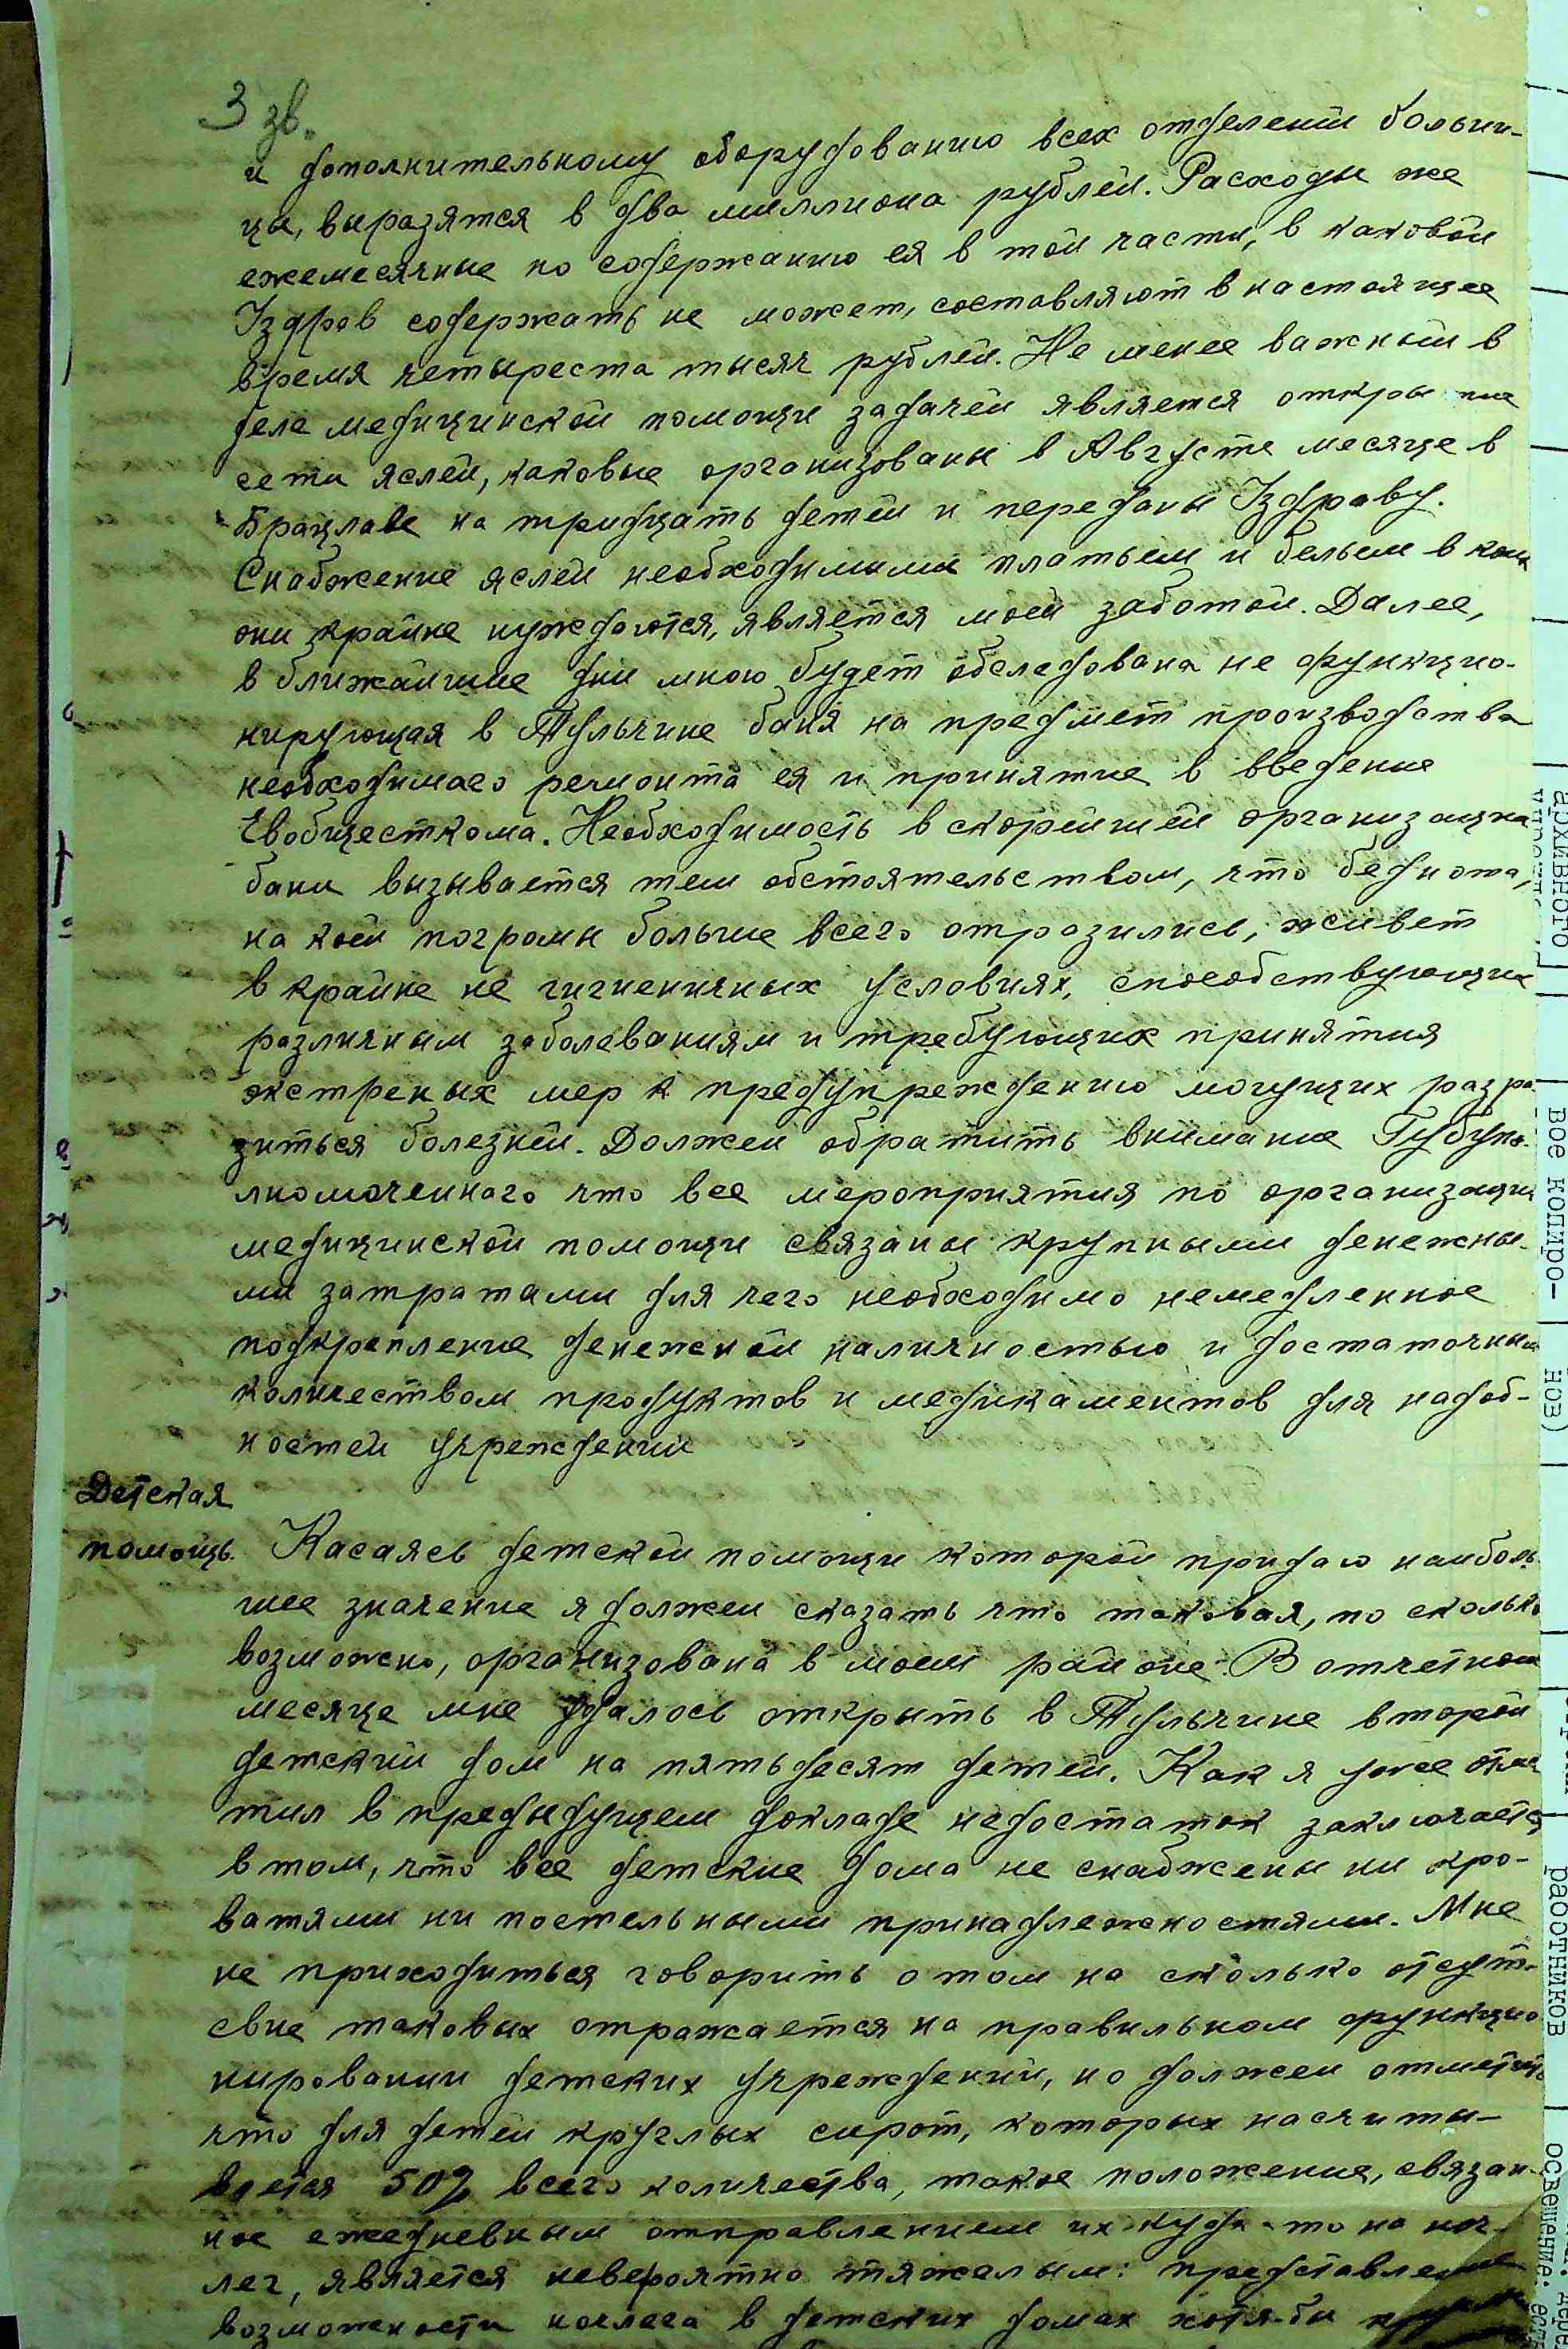 3 зв.
и дополнительному оборудованию всех отделений больни-
цы, выразятся в два миллиона рублей. Расходы же
ежемесячные по содержанию ея в той части, в каковой
Уздрав содержать не может, составляют в настоящее
время четыреста тысяч рублей. Не менее важной в
деле медицинской помощи задачей является открытие
сети яслей, каковые организованы в Августе месяце в
Брацлаве на тридцать детей и переданы Уздраву.
Снабжение яслей необходимыми платьем и бельем в коих
они крайне нуждаются, является моей заботой. Далее,
в ближайшие дни мною будет обследована не функцио-
нирующая в Тульчине баня на предмет производства
необходимаго ремонта ея и принятие в введение
Евобщесткома. Необходимость в скорейшей организации
бани вызывается тем обстоятельством, что беднота,
на коей погромы больше всего отразились, живет
в крайне не гигиеничных условиях, способствующих
различным заболеваниям и требующих принятия
экстреных мер к предупреждению могущих разра-
зиться болезней. Должен обратить внимание Губупо-
лномоченнаго что все мероприятия по организации
медицинской помощи связаны крупными денежны-
ми затратами для чего необходимо немедленное
подкрепление денежной наличностью и достаточным
количеством продуктов и медикаментов для надоб-
ностей учреждений
Детская
помощь. Касаясь детской помощи которой придаю наиболь-
шее значение я должен сказать что таковая, по сколько
возможно, организована в моем районе. В отчетном
месяце мне удалось открыть в Тульчине второй
детский дом на пятьдесят детей. Как я уже отме
тил в предыдущем докладе недостаток заключается
в том, что все детские дома не снабжены ни кро-
ватями ни постельными принадлежностями. Мне
не приходиться говорить о том на сколько отсут-
свие таковых отражается на правильном функцио
нировании детских учреждений, но должен отметить
что для детей круглых сирот, которых насчиты-
вается 50% всего количества, такое положение, связан-
ное ежедневным отправлением их куда-то на ноч-
лег, является невероятно тяжелым: представление
возможности ночлега в детских домах хотя-бы
архивного
вое копиро-
нов)
работников
освещение.